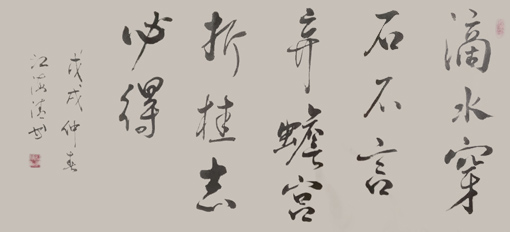 滴水穿
石不言
弃蟾宫
折桂志
必得
戊戌仲春